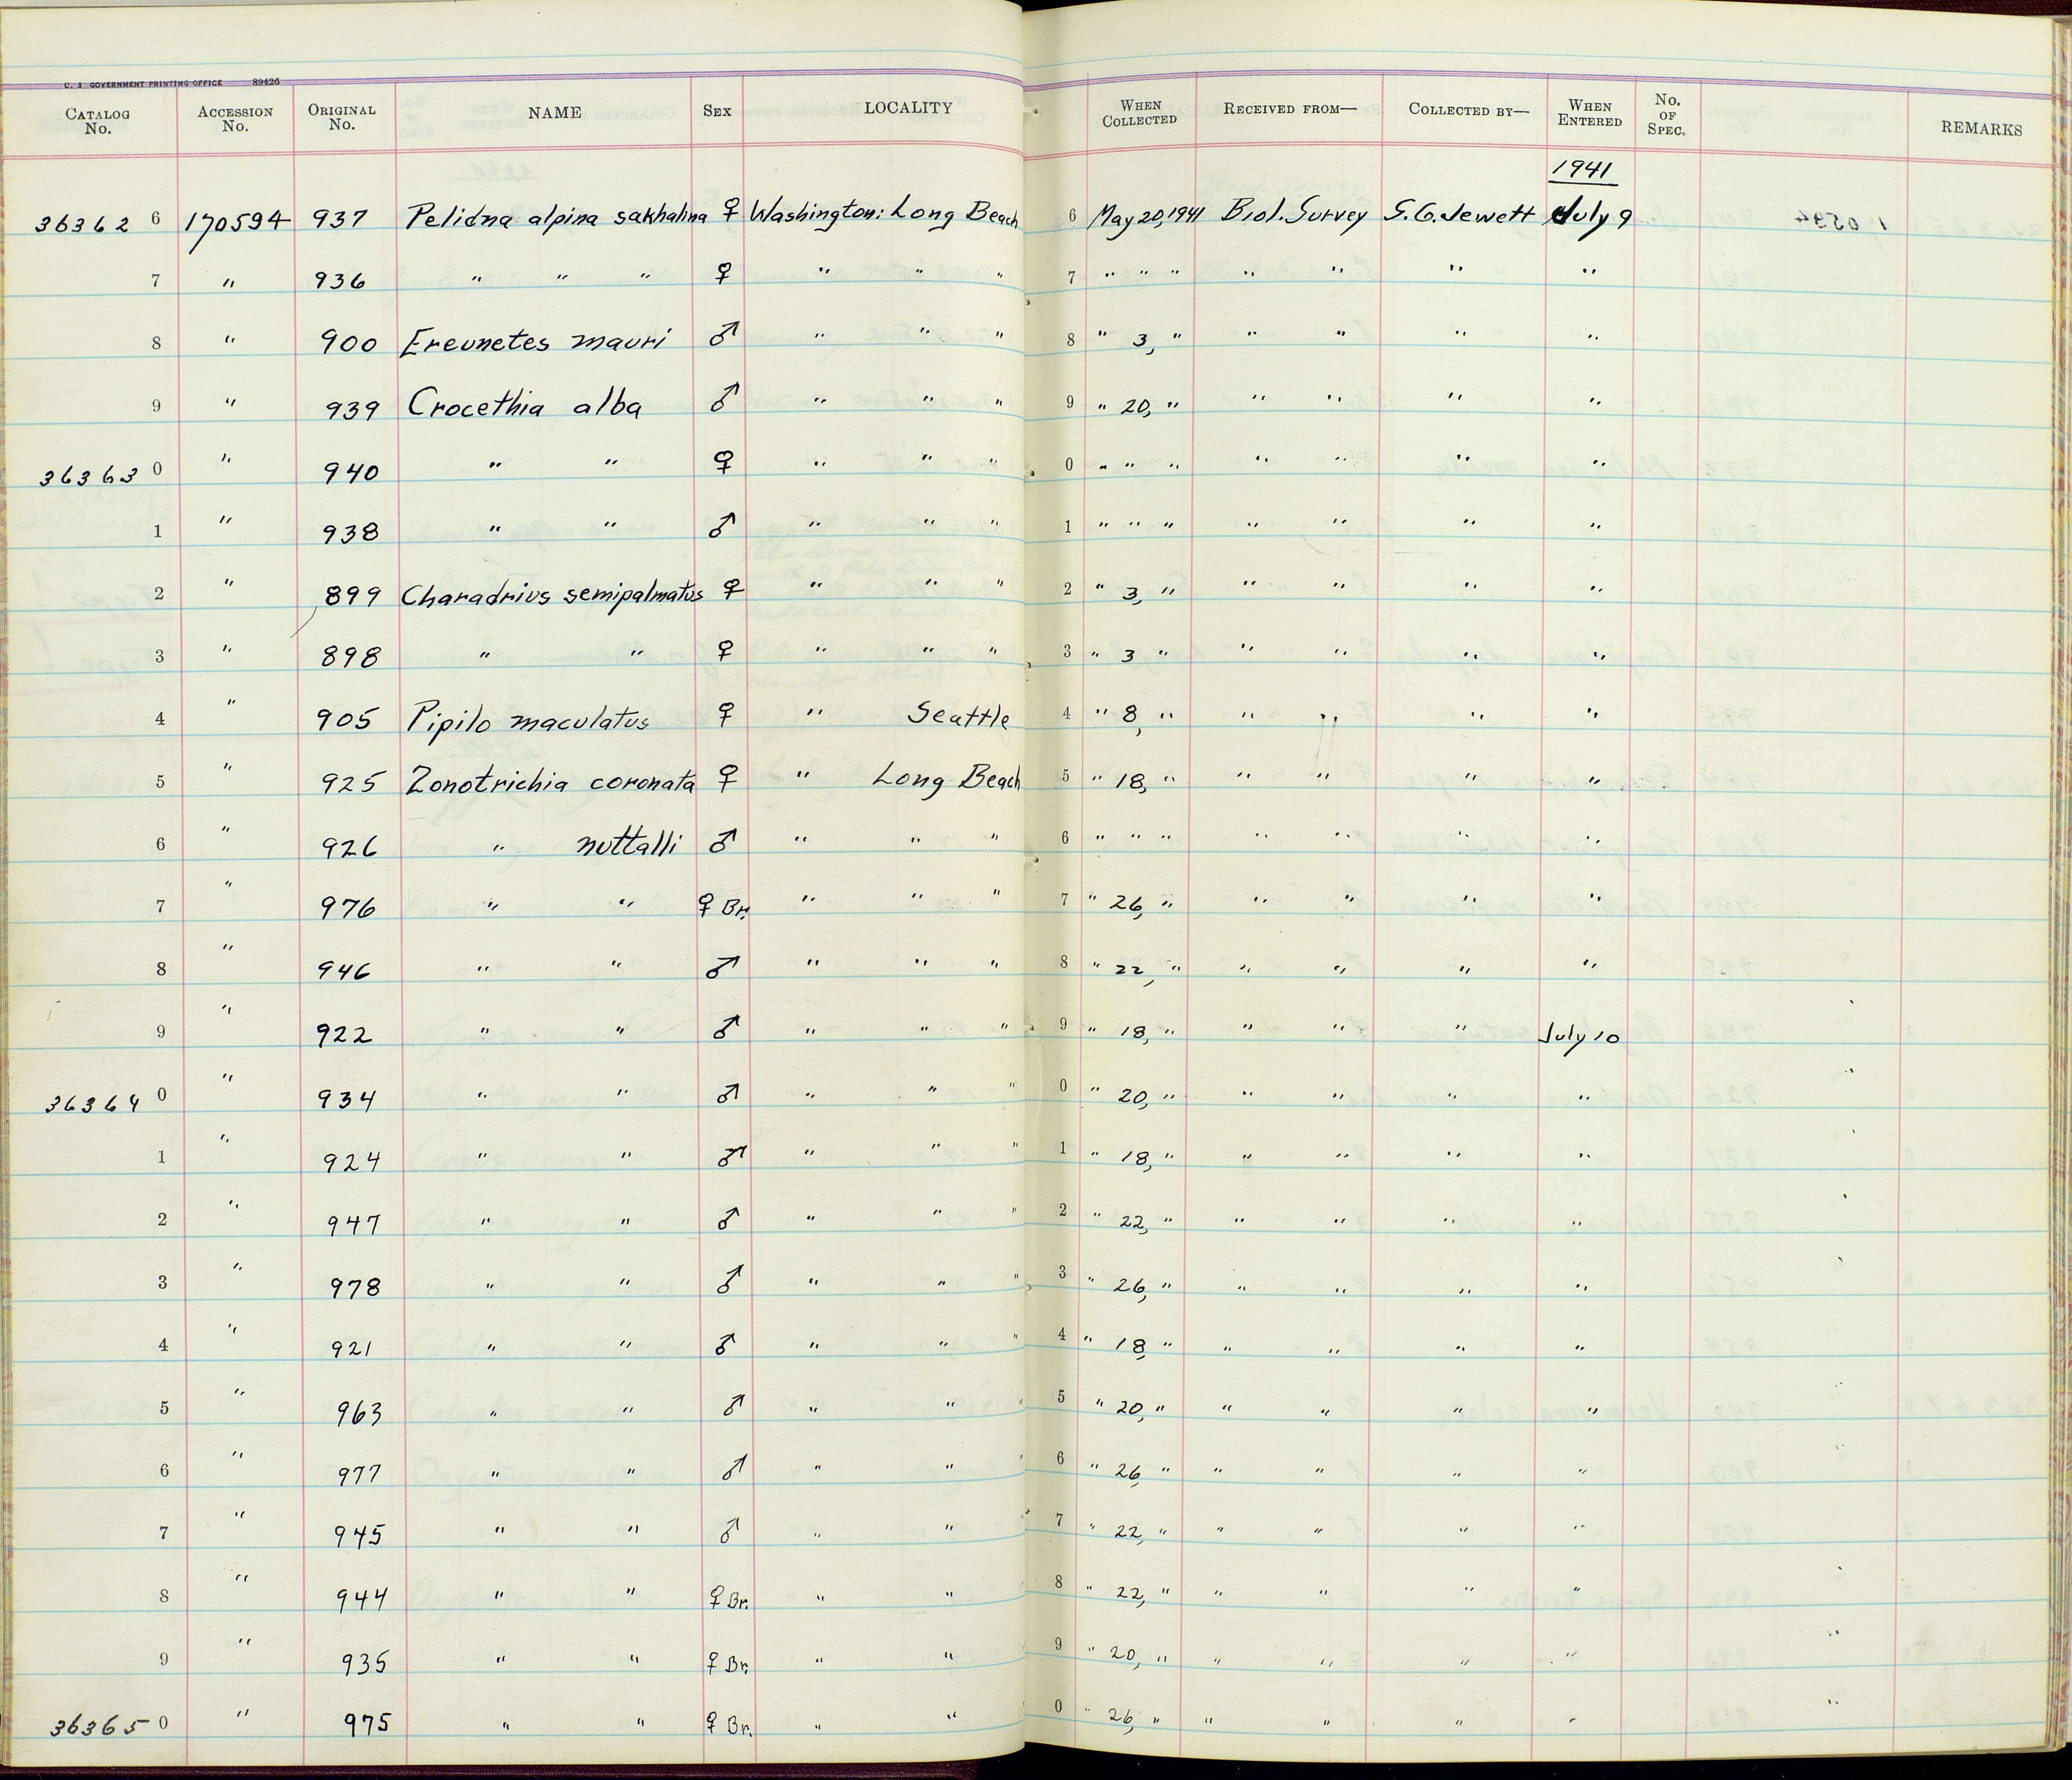 U. S. GOVERNMENT PRINTING OFFICE 89426
CATALOG No. ACCESSION No. ORIGINAL No. NAME SEX LOCALITY WHEN COLLECTED RECEIVED FROM— COLLECTED BY— WHEN ENTERED No. OF SPEC. REMARKS
1941
36362 6 170594 937 Pelidna alpina sakhalina ♀ Washington: Long Beach 6 May 20, 1941 Biol. Survey S. G. Jewett July 9
7 " 936 " " " ♀ " " " 7 " " " " " " "
8 " 900 Ereunetes mauri ♂ " " " 8 " 3, " " " " "
9 " 939 Crocethia alba ♂ " " " 9 " 20, " " " " "
36363 0 " 940 " " ♀ " " " 0 " " " " " " "
1 " 938 " " ♂ " " " 1 " " " " " " "
2 " 899 Charadrius semipalmatus ♀ " " " 2 " 3, " " " " "
3 " 898 " " ♀ " " " 3 " 3 " " " " "
4 " 905 Pipilo maculatus ♀ " Seattle 4 " 8, " " " " "
5 " 925 Zonotrichia coronata ♀ " Long Beach 5 " 18, " " " " "
6 " 926 " nuttalli ♂ " " " 6 " " " " " " "
7 " 976 " " ♀ Br. " " " 7 " 26, " " " " "
8 " 946 " " ♂ " " " 8 " 22, " " " " "
9 " 922 " " ♂ " " " 9 " 18, " " " " July 10
36364 0 " 934 " " ♂ " " " 0 " 20, " " " " "
1 " 924 " " ♂ " " " 1 " 18, " " " " "
2 " 947 " " ♂ " " " 2 " 22, " " " " "
3 " 978 " " ♂ " " " 3 " 26, " " " " "
4 " 921 " " ♂ " " " 4 " 18, " " " " "
5 " 963 " " ♂ " " " 5 " 20, " " " " "
6 " 977 " " ♂ " " " 6 " 26, " " " " "
7 " 945 " " ♂ " " " 7 " 22, " " " " "
8 " 944 " " ♀ Br. " " 8 " 22, " " " " "
9 " 935 " " ♀ Br. " " 9 " 20, " " " " "
36365 0 " 975 " " ♀ Br. " " 0 " 26, " " " " "